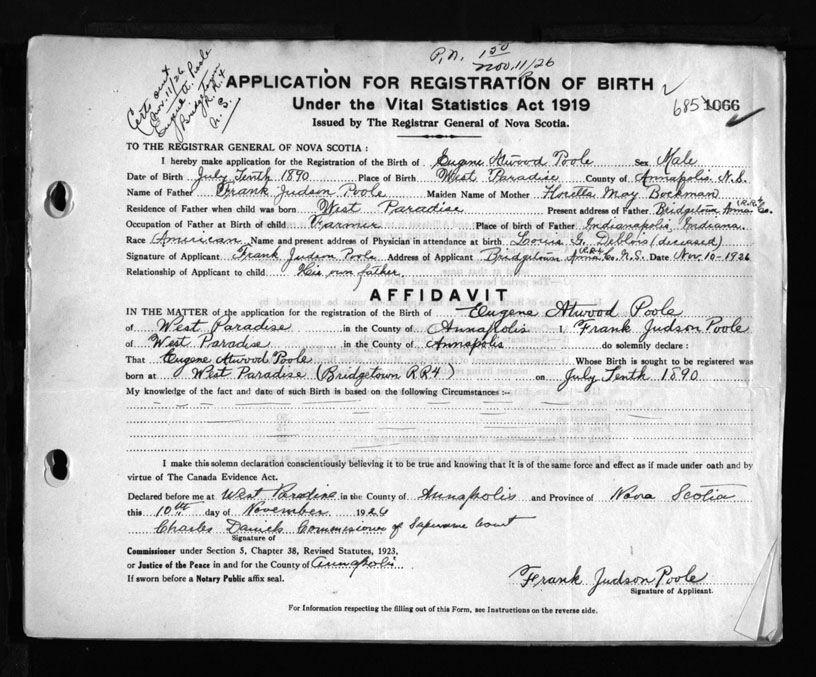 P.N. 150
Nov. 11/26
Certs out
Nov. 11/26
Eugene A. Poole
Bridgetown
R.R.4
N.S.
APPLICATION FOR REGISTRATION OF BIRTH
Under the Vital Statistics Act 1919
685 1066
Issued by The Registrar General of Nova Scotia.
TO THE REGISTRAR GENERAL OF NOVA SCOTIA :
I hereby make application for the Registration of the Birth of Eugene Atwood Poole Sex Male
Date of Birth July Tenth 1890 Place of Birth West Paradise County of Annapolis N.S.
Name of Father Frank Judson Poole Maiden Name of Mother May Bockman
Residence of Father when child was born West Paradise Present address of Father Bridgetown Anna. Co. (R.R.4)
Occupation of Father at Birth of child Farmer Place of birth of Father Indianapolis Indiana.
Race American Name and present address of Physician in attendance at birth Louis G. Deblois (deceased)
Signature of Applicant Frank Judson Poole Address of Applicant Bridgetown (RR4) Anna Co. N.S. Date Nov. 10 - 1926
Relationship of Applicant to child His own father.
AFFIDAVIT
IN THE MATTER of the application for the registration of the Birth of Eugene Atwood Poole
of West Paradise in the County of Annapolis I, Frank Judson Poole
of West Paradise in the County of Annapolis do solemnly declare :
That Eugene Atwood Poole Whose Birth is sought to be registered was
born at West Paradise (Bridgetown RR4) on July Tenth 1890
My knowledge of the fact and date of such Birth is based on the following Circumstances :–
I make this solemn declaration conscientiously believing it to be true and knowing that it is of the same force and effect as if made under oath and by
virtue of The Canada Evidence Act.
Declared before me at West Paradise in the County of Annapolis and Province of Nova Scotia
this 10th day of November 1926
Charles Daniels Commissioner of Supreme Court
Signature of
Commissioner under Section 5, Chapter 38, Revised Statutes, 1923,
or Justice of the Peace in and for the County of Annapolis
If sworn before a Notary Public affix seal.
Frank Judson Poole
Signature of Applicant.
For Information respecting the filling out of this Form, see Instructions on the reverse side.